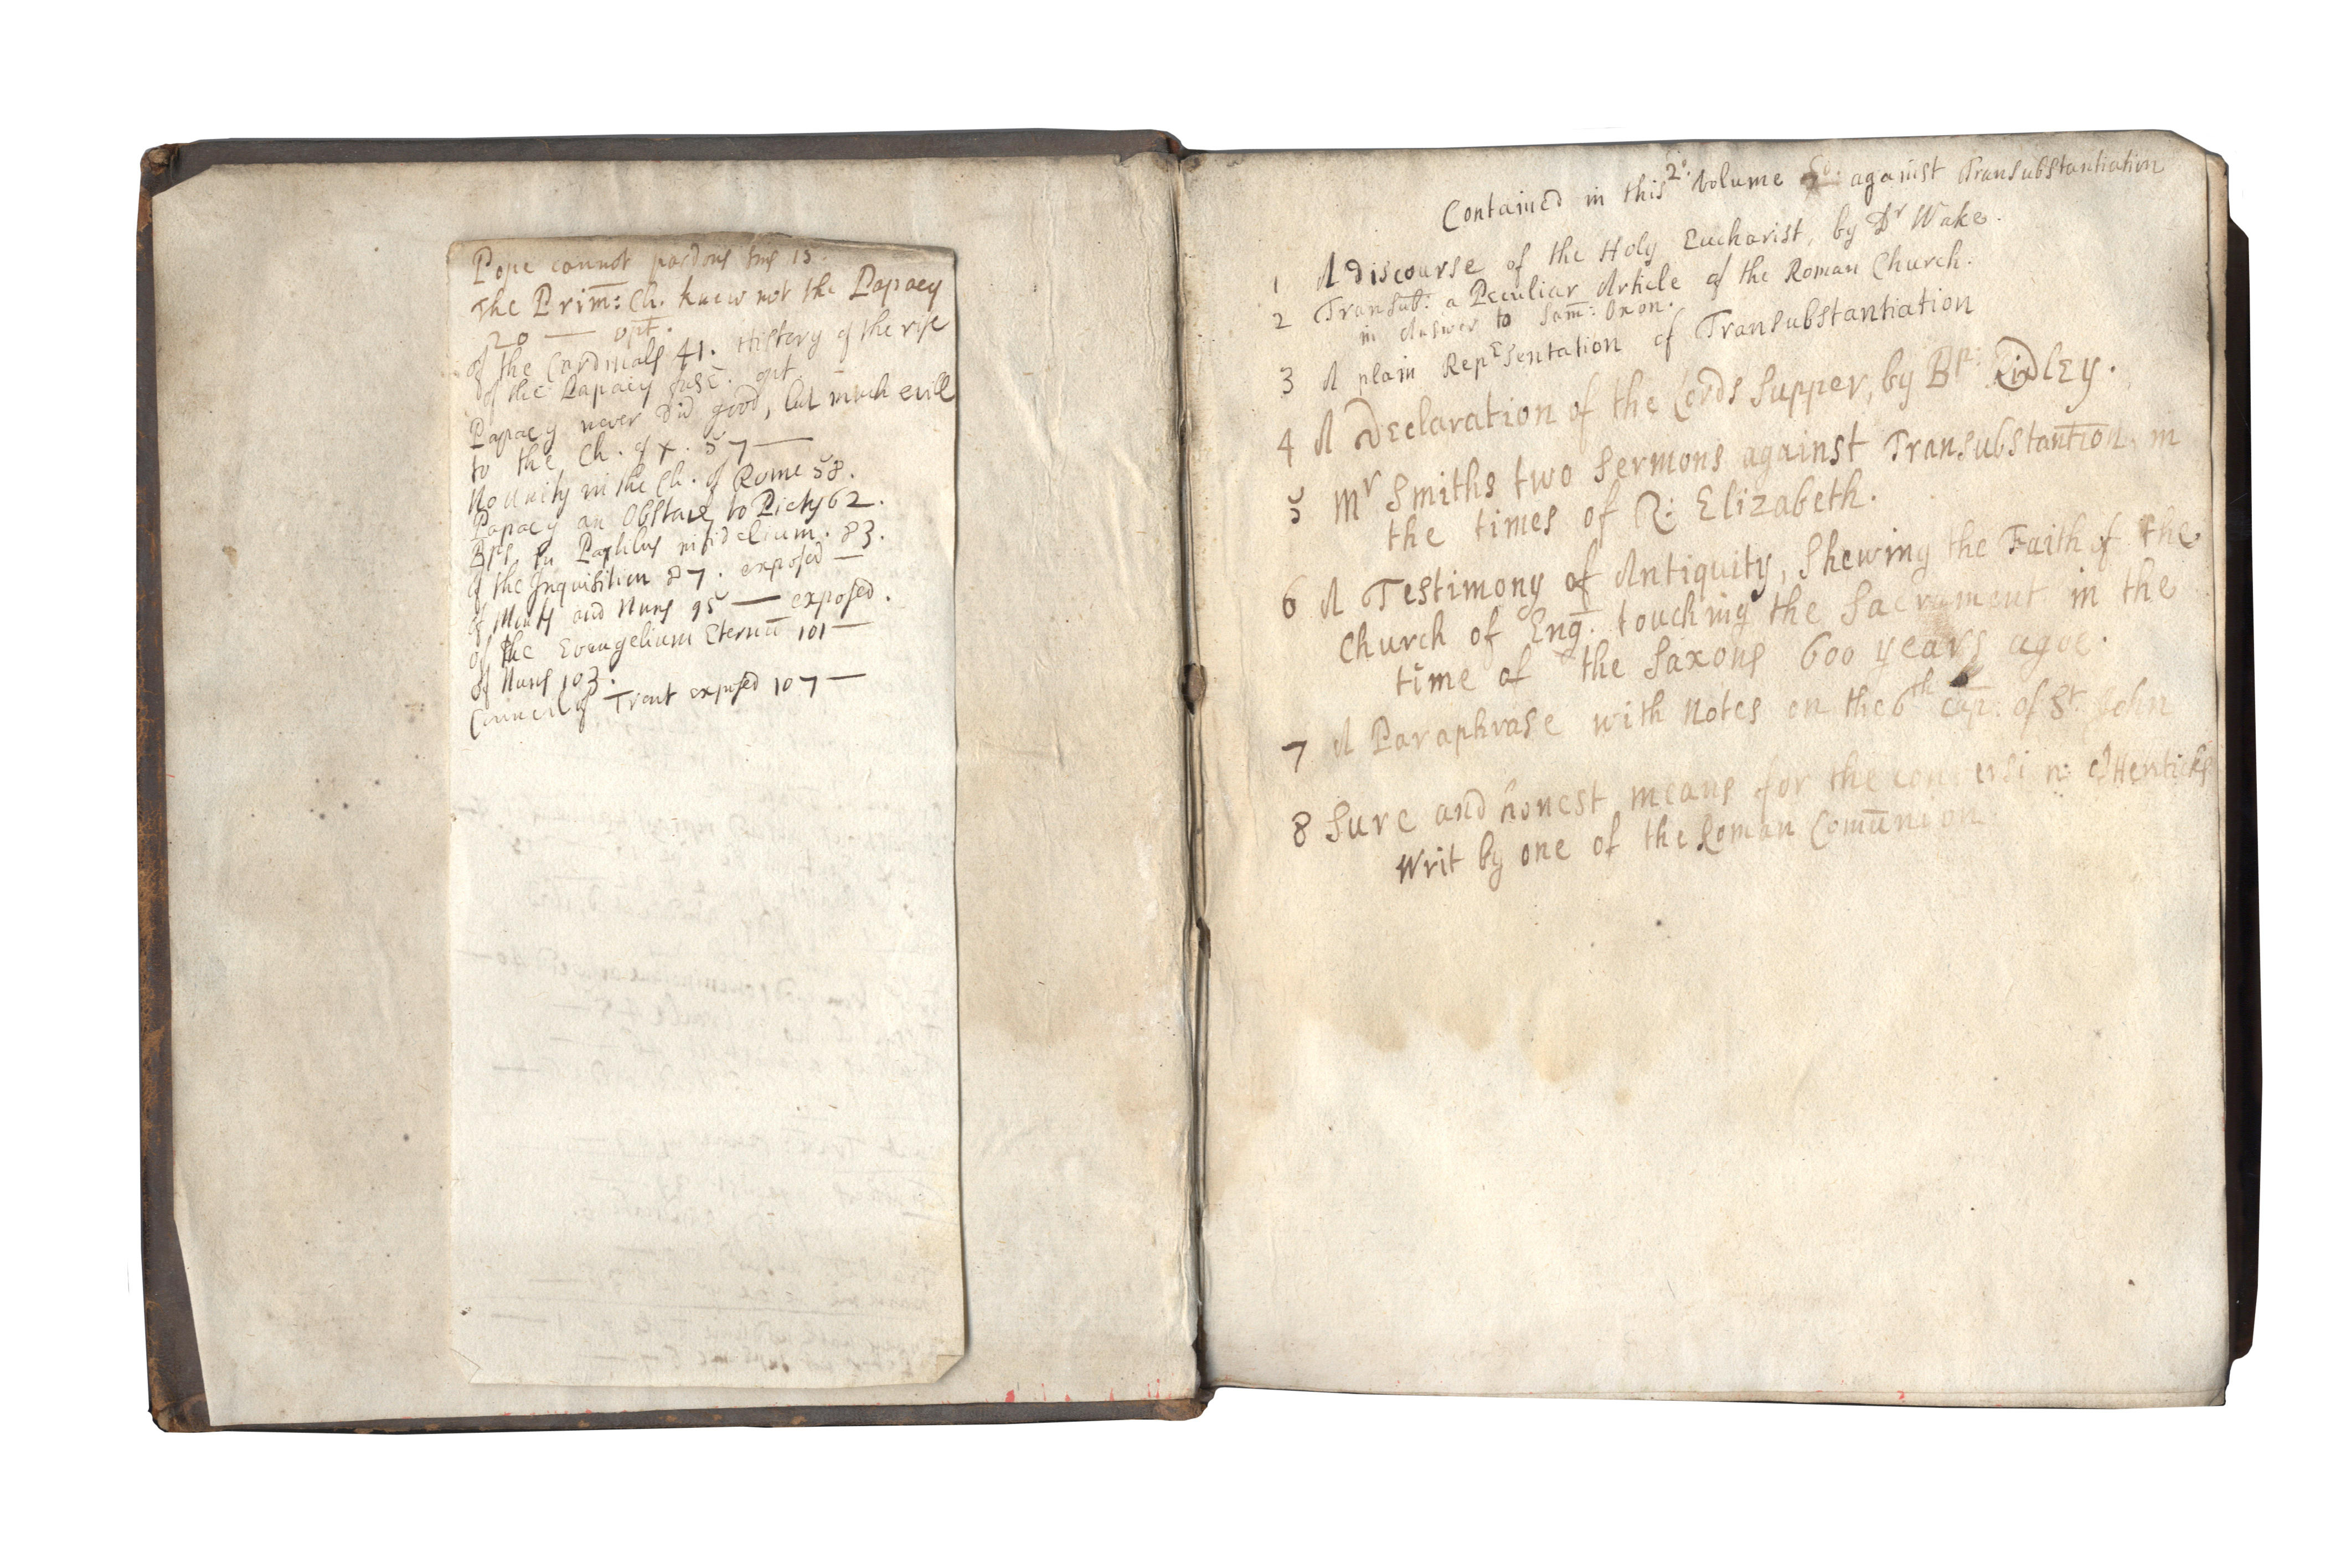 Pope cannot pardons sins 15.
The Prim̄: Ch. knew not the Papacy
20 — opt.
of the Cardinals 41. History of the rise
of the Papacy fuse. opt.
Papacy never did good, but much evill
to the Ch. of X. 57 —
No unity in the Ch. of Rome 58.
Papacy an Obstacle to Piety 62.
Bps. in Partibus infidelium. 83.
of the Inquisition 87. exposed —
of Monks and Nuns 95 — exposed.
of the Evangelium Eternū 101 —
of Nuns 103.
Councel of Trent exposed 107 —
Contained in this 2d: Volume against Transubstantiation
1 A discourse of the Holy Eucharist, by Dr Wake.
2 Transub̄: a Peculiar Article of the Roman Church.
in Answer to Sam̄: Oxon.
3 A plain Repesentation of Transubstantiation
4 A Declaration of the Lords Supper, by Bp: Ridley.
5 Mr Smiths two Sermons against Transubstantion. in
the times of Q: Elizabeth.
6 A Testimony of Antiquity, Shewing the Faith of the
Church of Eng̅. touching the Sacrament in the
time of the Saxons 600 years agoe.
7 A Paraphrase with Notes on the 6th cap: of St. John
8 Sure and honest means for the conversion of Heriticks
Writ by one of the Roman Comūnion